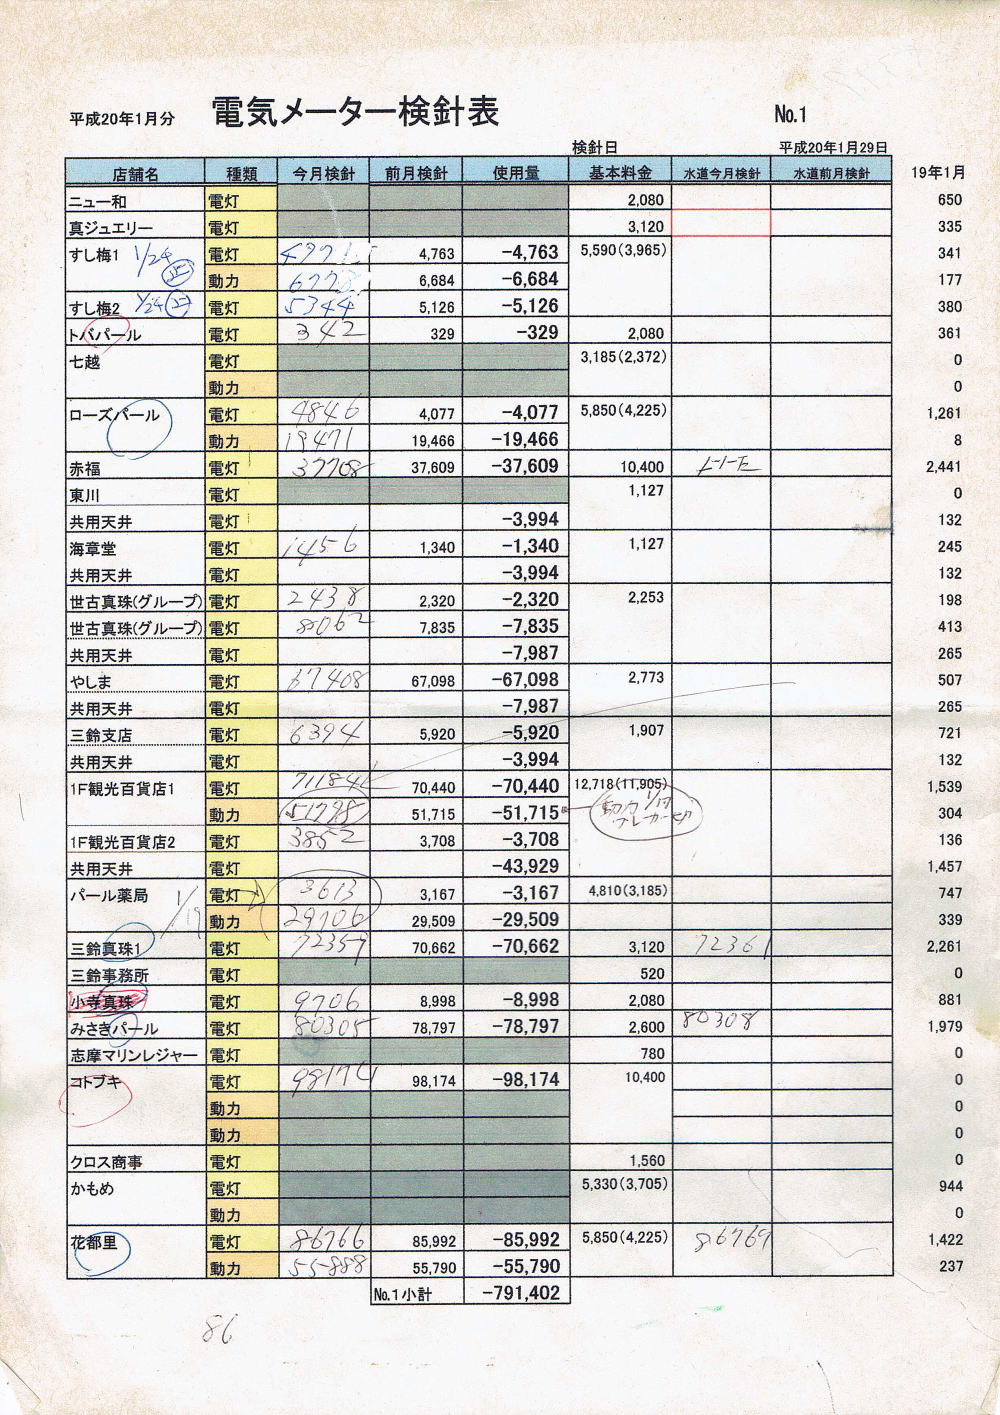 平成20年1月分 電気メーター検針表 No.1
検針日 平成20年1月29日
店舗名 種類 今月検針 前月検針 使用量 基本料金 水道今月検針 水道前月検針 19年1月
ニュー和 電灯 2,080 650
真ジュエリー 電灯 3,120 335
すし梅1 1/24 電灯 4,763 -4,763 5,590(3,965) 341
動力 6,684 -6,684 177
すし梅2 1/24 電灯 5344 5,126 -5,126 380
トバパール 電灯 342 329 -329 2,080 361
七越 電灯 3,185(2,372) 0
動力 0
ローズパール 電灯 4846 4,077 -4,077 5,850(4,225) 1,261
動力 19471 19,466 -19,466 8
赤福 電灯 37708 37,609 -37,609 10,400 2,441
東川 電灯 1,127 0
共用天井 電灯 -3,994 132
海章堂 電灯 1456 1,340 -1,340 1,127 245
共用天井 電灯 -3,994 132
世古真珠(グループ) 電灯 2438 2,320 -2,320 2,253 198
世古真珠(グループ) 電灯 8062 7,835 -7,835 413
共用天井 電灯 -7,987 265
やしま 電灯 67408 67,098 -67,098 2,773 507
共用天井 電灯 -7,987 265
三鈴支店 電灯 6394 5,920 -5,920 1,907 721
共用天井 電灯 -3,994 132
1F観光百貨店1 電灯 71184 70,440 -70,440 12,718(11,905) 1,539
動力 51798 51,715 -51,715 動力 304
1F観光百貨店2 電灯 3852 3,708 -3,708 136
共用天井 電灯 -43,929 1,457
パール薬局 1/19 電灯 3613 3,167 -3,167 4,810(3,185) 747
動力 29706 29,509 -29,509 339
三鈴真珠1 電灯 72357 70,662 -70,662 3,120 72361 2,261
三鈴事務所 電灯 520 0
小寺真珠 電灯 9706 8,998 -8,998 2,080 881
みさきパール 電灯 80305 78,797 -78,797 2,600 80308 1,979
志摩マリンレジャー 電灯 780 0
コトブキ 電灯 98174 98,174 -98,174 10,400 0
動力 0
動力 0
クロス商事 電灯 1,560 0
かもめ 電灯 5,330(3,705) 944
動力 0
花都里 電灯 86766 85,992 -85,992 5,850(4,225) 86769 1,422
動力 55888 55,790 -55,790 237
No.1小計 -791,402
86